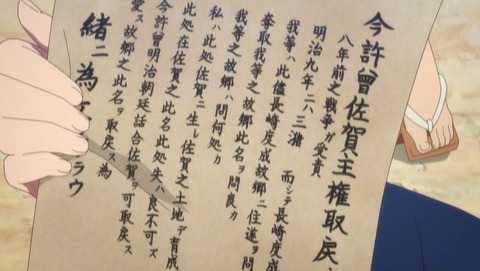 今許曾佐賀主権取戻
八年前之戦争ガ受責
明治九年ニハ三潴
我等ハ此儘長崎度成故郷ニ住迄ヲ問
奪取我等之故郷此名ヲ問良カ
我等之故郷ハ問何処カ
私ハ此処佐賀ニ生レ佐賀之土地デ育成
此処住佐賀之此名此処失ハ良不可ズ
今許曾明治朝廷話合佐賀ヲ可取戻ス
愛ス故郷之此名ヲ取戻ス為
緒ニ為
ラウ